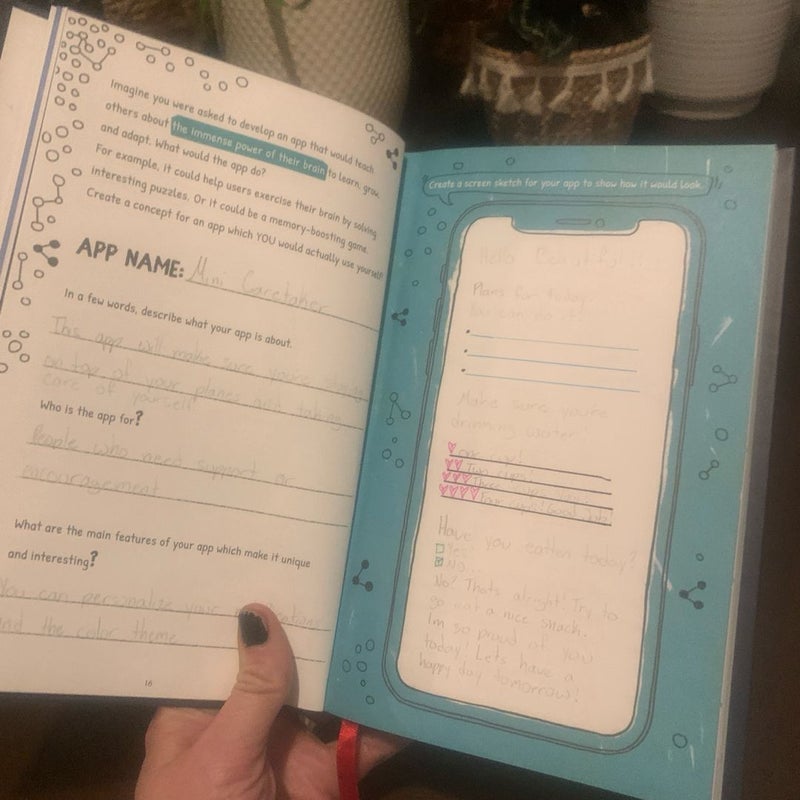 Imagine you were asked to develop an app that would teach
others about the immense power of their brain to learn, grow,
and adapt. What would the app do?
For example, it could help users exercise their brain by solving
interesting puzzles. Or it could be a memory-boosting game.
Create a concept for an app which YOU would actually use yourself!
APP NAME: Mini Caretaker
In a few words, describe what your app is about.
This app will make sure you're staying
on top of your planes and taking
care of yourself
Who is the app for?
People who need support or
encouragement
What are the main features of your app which make it unique
and interesting?
You can personalize your
and the color theme
16
Create a screen sketch for your app to show how it would look.
Hello
Plans for today:
You can do it!
Make sure you're
drinking water!
One cup!
Two cups!
Three cups
Four cups! Good Job!
Have you eatten today?
Yes!
No..
No? Thats alright! Try to
go eat a nice snack.
Im so proud of you
today! Lets have a
happy day tomorrow!